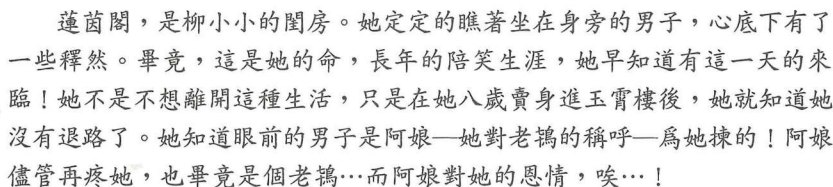 蓮茵閣，是柳小小的閨房。她定定的瞧著坐在身旁的男子，心底下有了
一些釋然。畢竟，這是她的命，長年的陪笑生涯，她早知道有這一天的來
臨！她不是不想離開這種生活，只是在她八歲賣身進玉霄樓後，她就知道她
沒有退路了。她知道眼前的男子是阿娘—她對老鴇的稱呼—為她揀的！阿娘
儘管再疼她，也畢竟是個老鴇…而阿娘對她的恩情，唉…！